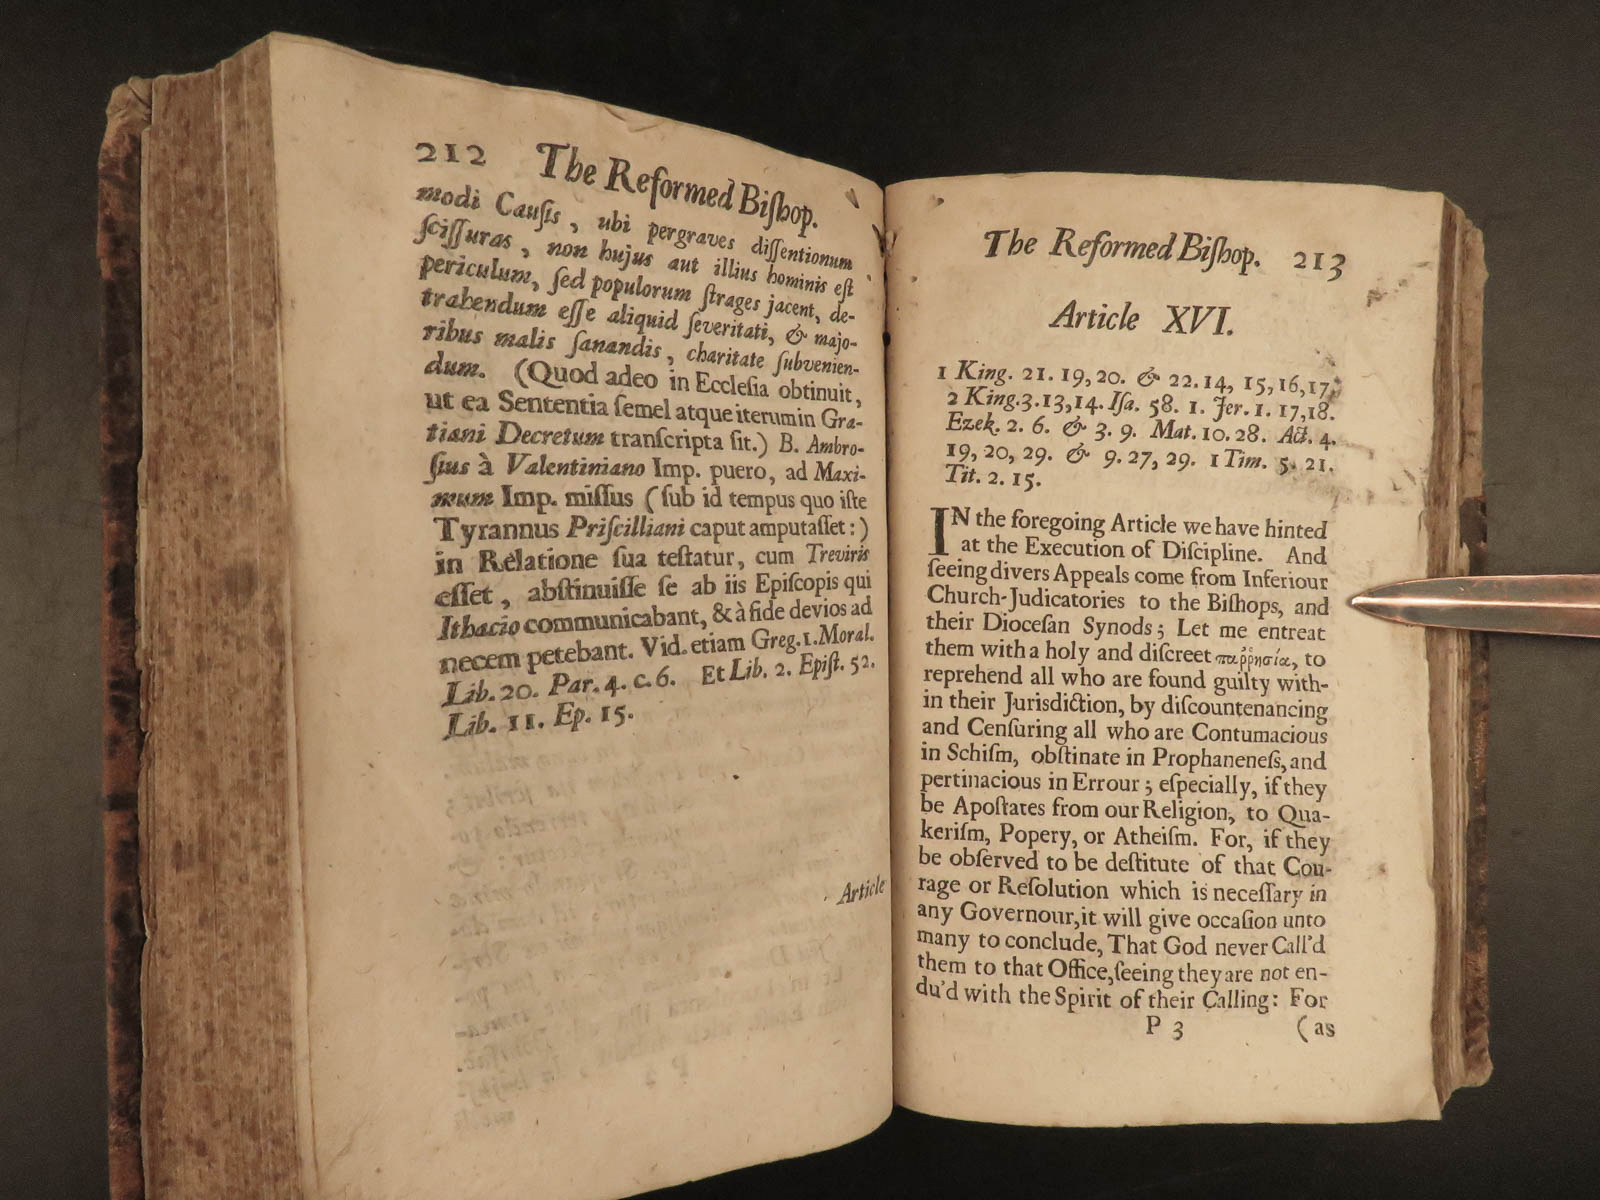 212 The Reformed Biſhop.
modi Cauſis, ubi pergraves diſſentionum
ſciſſuras, non hujus aut illius hominis eſt
periculum, ſed populorum ſtrages jacent, de-
trahendum eſſe aliquid ſeveritati, & majo-
ribus malis ſanandis, charitate ſubvenien-
dum. (Quod adeo in Eccleſia obtinuit,
ut ea Sententia ſemel atque iterum in Gra-
tiani Decretum tranſcripta ſit.) B. Ambro-
ſius à Valentiniano Imp. puero, ad Maxi-
mum Imp. miſſus (ſub id tempus quo iſte
Tyrannus Priſcilliani caput amputaſſet:)
in Relatione ſua teſtatur, cum Treviris
eſſet, abſtinuiſſe ſe ab iis Epiſcopis qui
Ithacio communicabant, & à fide devios ad
necem petebant. Vid. etiam Greg. 1. Moral.
Lib. 20. Par. 4. c. 6. Et Lib. 2. Epiſt. 52.
Lib. 11. Ep. 15.
Article
The Reformed Biſhop. 213
Article XVI.
1 King. 21. 19, 20. & 22. 14, 15, 16, 17,
2 King. 3. 13, 14. Iſa. 58. 1. Jer. 1. 17, 18.
Ezek. 2. 6. & 3. 9. Mat. 10. 28. Act. 4.
19, 20, 29. & 9. 27, 29. 1 Tim. 5. 21.
Tit. 2. 15.
IN the foregoing Article we have hinted
at the Execution of Diſcipline. And
ſeeing divers Appeals come from Inferiour
Church-Judicatories to the Biſhops, and
their Dioceſan Synods; Let me entreat
them with a holy and diſcreet παῤῥησία, to
reprehend all who are found guilty with-
in their Jurisdiction, by diſcountenancing
and Cenſuring all who are Contumacious
in Schiſm, obſtinate in Prophaneneſs, and
pertinacious in Errour; eſpecially, if they
be Apoſtates from our Religion, to Qua-
keriſm, Popery, or Atheiſm. For, if they
be obſerved to be deſtitute of that Cou-
rage or Reſolution which is neceſſary in
any Governour, it will give occaſion unto
many to conclude, That God never Call'd
them to that Office, ſeeing they are not en-
du'd with the Spirit of their Calling: For
P 3 (as